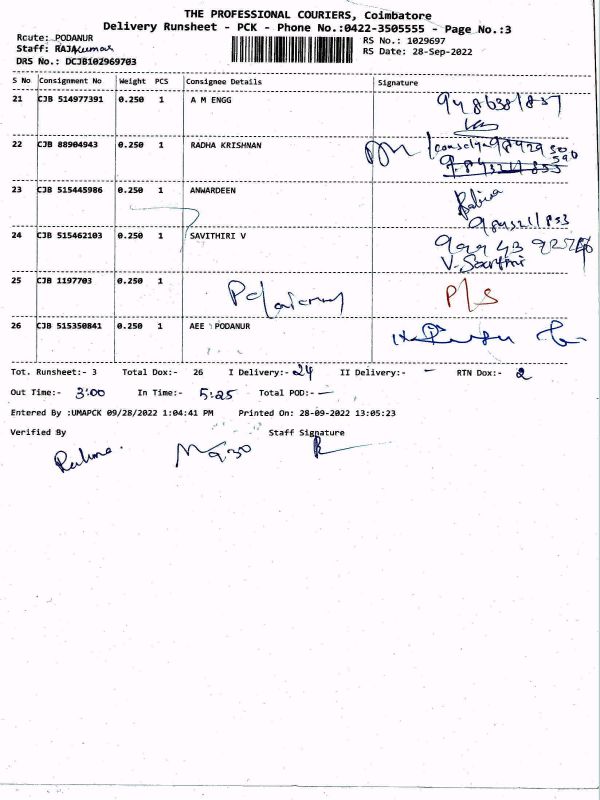 THE PROFESSIONAL COURIERS, Coimbatore
Delivery Runsheet - PCK - Phone No.:0422-3505555 - Page No.:3
Route: PODANUR
RS No.: 1029697
Staff: RAJAKumar
RS Date: 28-Sep-2022
DRS No.: DCJB102969703
S No Consignment No Weight PCS Consignee Details Signature
21 CJB 514977391 0.250 1 A M ENGG
22 CJB 88904943 0.250 1 RADHA KRISHNAN
23 CJB 515445986 0.250 1 ANWARDEEN
24 CJB 515462103 0.250 1 SAVITHIRI V
25 CJB 1197703 0.250 1 P/S
26 CJB 515350841 0.250 1 AEE PODANUR
Tot. Runsheet:- 3 Total Dox:- 26 I Delivery:- 24 II Delivery:- — RTN Dox:- 2
Out Time:- 3:00 In Time:- 5:25 Total POD:- —
Entered By :UMAPCK 09/28/2022 1:04:41 PM Printed On: 28-09-2022 13:05:23
Verified By Staff Signature